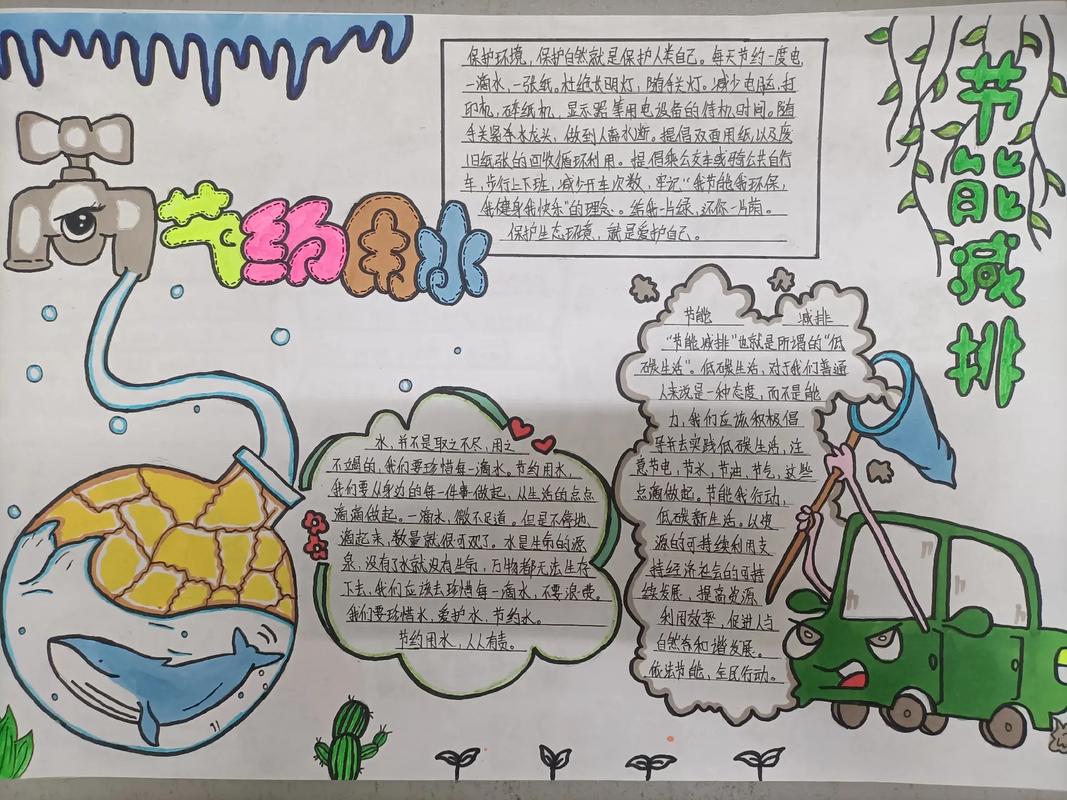 节能减排
节约用水
保护环境，保护自然就是保护人类自己。每天节约一度电
一滴水，一张纸。杜绝长明灯，随手关灯。减少电脑，打
印机，碎纸机，显示器等用电设备的待机时间。随
手关紧手水龙头，做到人离水断。提倡双面用纸以及废
旧纸张的回收循环利用。提倡乘公交车或骑公共自行
车，步行上下班，减少开车次数，牢记“我节能我环保，
我健身我快乐”的理念。给我一片绿，还你一片荫。
保护生态环境，就是爱护自己。
水，并不是取之不尽，用之
不竭的，我们要珍惜每一滴水。节约用水，
我们要从身边的每一件事做起，从生活的点点
滴滴做起。一滴水，微不足道。但是不停地
滴起来，数量就很可观了。水是生命的源
泉，没有了水就没有生命，万物都无法生存
下去，我们应该去珍惜每一滴水，不要浪费。
我们要珍惜水，爱护水，节约水。
节约用水，人人有责。
节能 减排
“节能减排”也就是所谓的“低
碳生活”。低碳生活，对于我们普通
人来说是一种态度，而不是能
力，我们应该积极倡
导并去实践低碳生活，注
意节电，节水，节油，节气，这些
点滴做起。节能我行动，
低碳新生活。以资
源的可持续利用支
持经济社会的可持
续发展，提高资源
利用效率，促进人与
自然各和谐发展。
依法节能，全民行动。